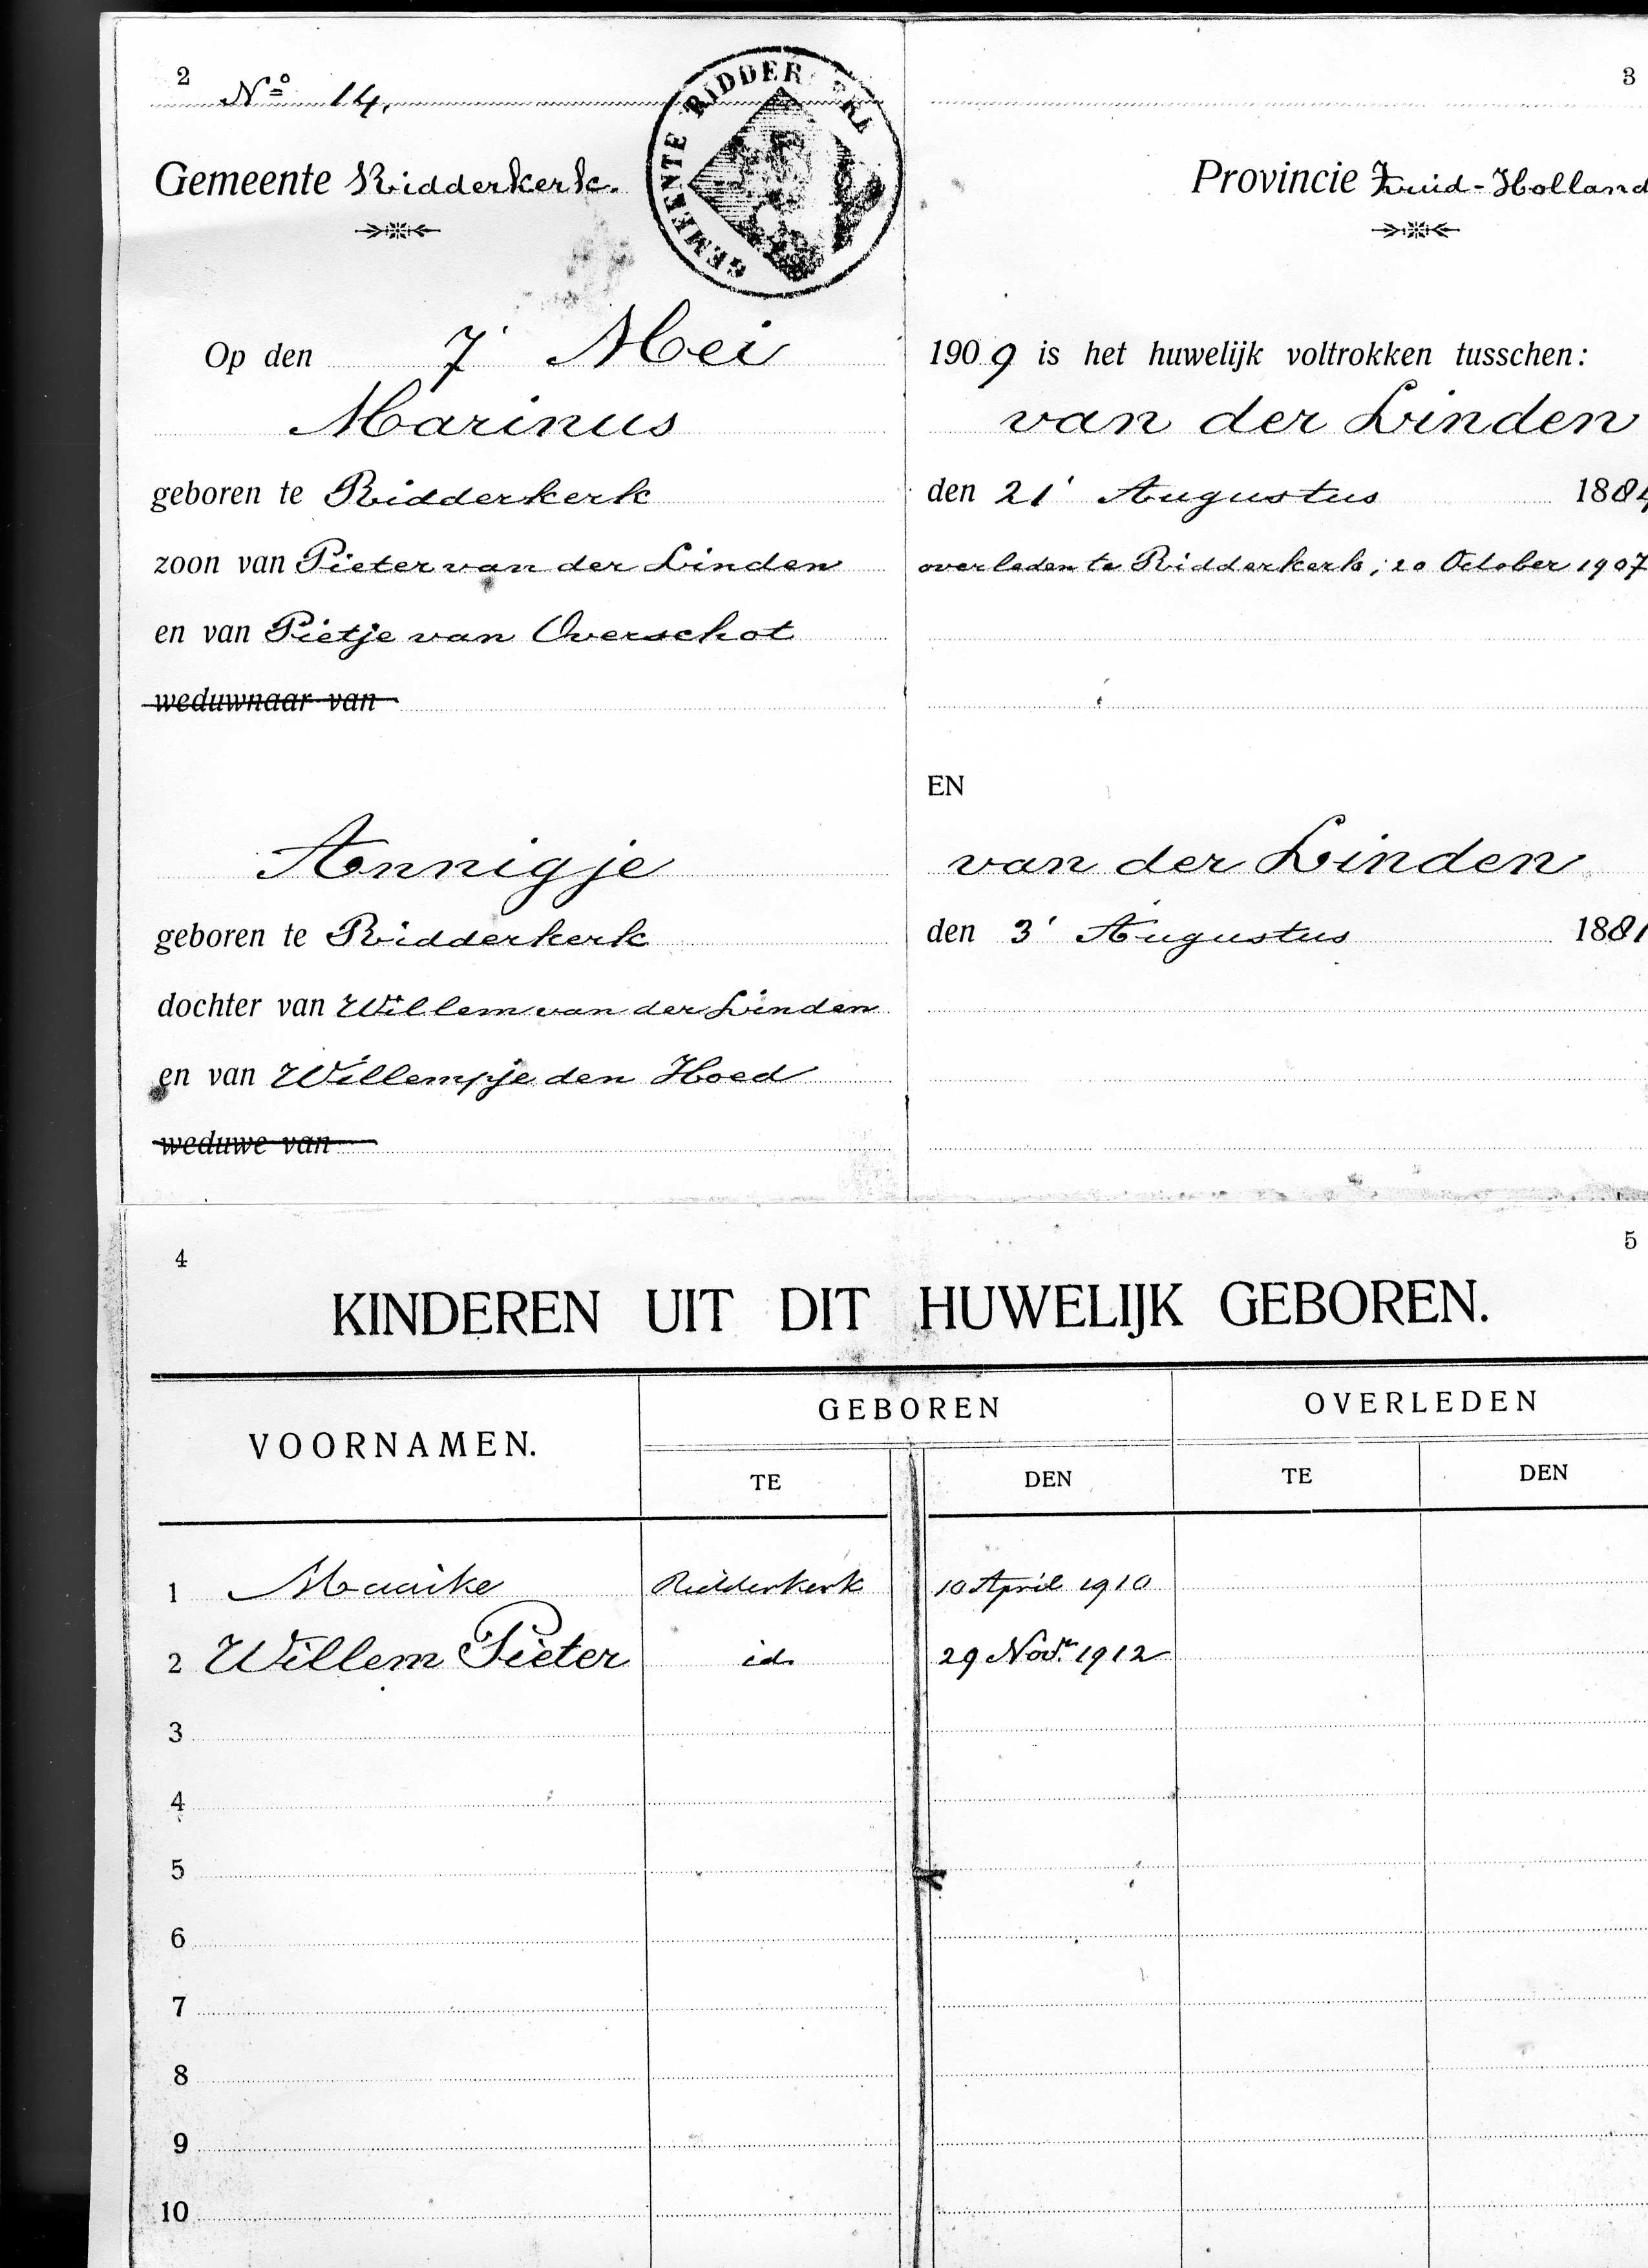 2 No 14. 3
GEMEENTE RIDDERKERK
Gemeente Ridderkerk. Provincie Zuid-Holland
Op den 7' Mei 1909 is het huwelijk voltrokken tusschen:
Marinus van der Linden
geboren te Ridderkerk den 21' Augustus 1884
zoon van Pieter van der Linden overleden te Ridderkerk, 20 October 1907
en van Pietje van Overschot
weduwnaar van
EN
Annigje van der Linden
geboren te Ridderkerk den 3' Augustus 1881
dochter van Willem van der Linden
en van Willempje den Hoed
weduwe van
4 5
KINDEREN UIT DIT HUWELIJK GEBOREN.
VOORNAMEN. GEBOREN OVERLEDEN
TE DEN TE DEN
1 Maaike Ridderkerk 10 April 1910
2 Willem Pieter id. 29 Novr. 1912
3
4
5
6
7
8
9
10